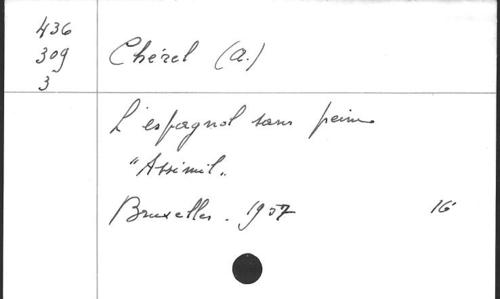 436
309
3
Chérel (A.)
L'espagnol sans peine
"Assimil"
Bruxelles. 1957
16°